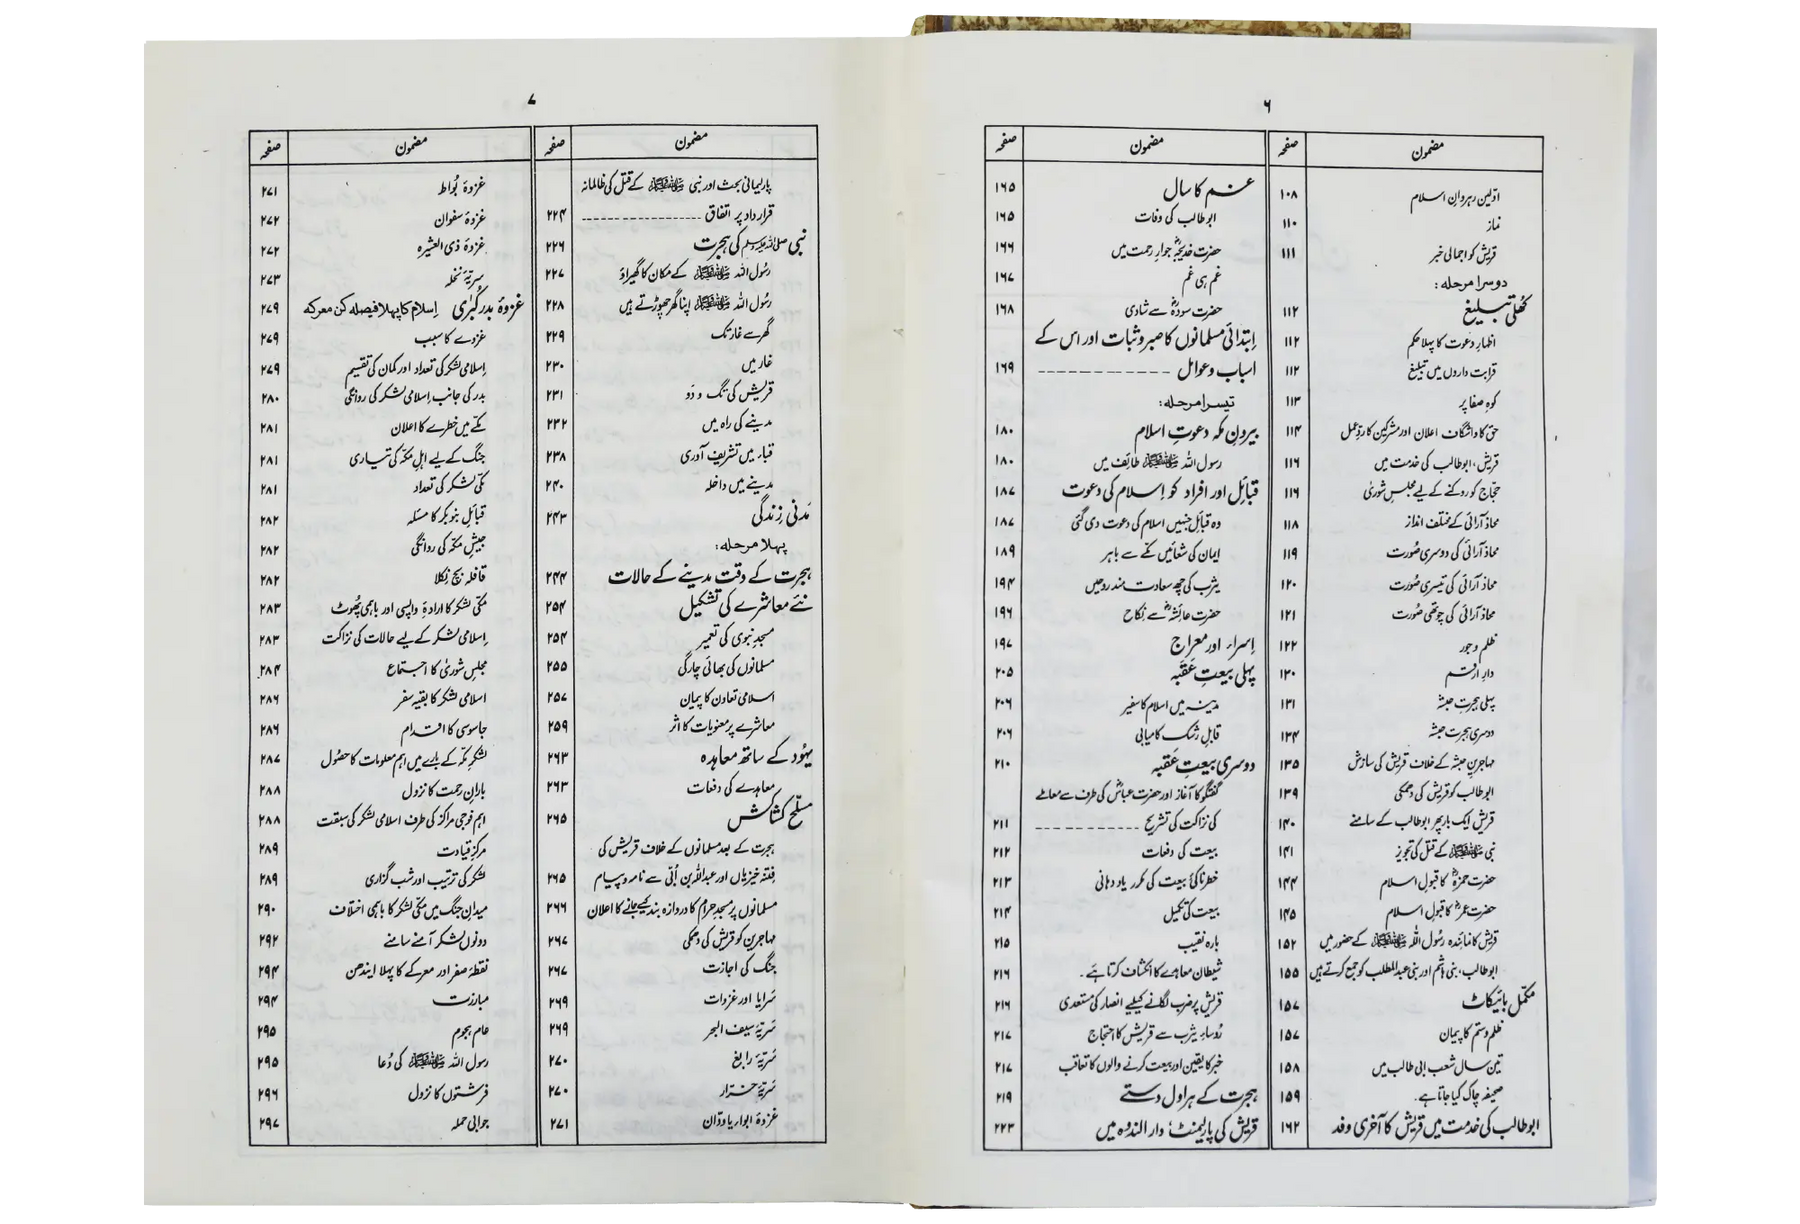 ۶
مضمون صفحہ
اوّلین رہروانِ اسلام ۱۰۸
نماز ۱۱۰
قریش کو اجمالی خبر ۱۱۱
دوسرا مرحلہ:
کھُلی تبلیغ ۱۱۲
اظہارِ دعوت کا پہلا حکم ۱۱۲
قرابت داروں میں تبلیغ ۱۱۲
کوہِ صفا پر ۱۱۳
حق کا واشگاف اعلان اور مشرکین کا ردِّ عمل ۱۱۴
قریش، ابو طالب کی خدمت میں ۱۱۶
حجّاج کو روکنے کے لیے مجلسِ شوریٰ ۱۱۶
محاذ آرائی کے مختلف انداز ۱۱۸
محاذ آرائی کی دوسری صُورت ۱۱۹
محاذ آرائی کی تیسری صُورت ۱۲۰
محاذ آرائی کی چوتھی صُورت ۱۲۱
ظلم و جور ۱۲۲
دارِ ارقم ۱۳۰
پہلی ہجرتِ حبشہ ۱۳۱
دوسری ہجرتِ حبشہ ۱۳۴
مہاجرینِ حبشہ کے خلاف قریش کی سازش ۱۳۵
ابو طالب کو قریش کی دھمکی ۱۳۹
قریش ایک بار پھر ابو طالب کے سامنے ۱۴۰
نبی ﷺ کے قتل کی تجویز ۱۴۱
حضرت حمزہؓ کا قبولِ اسلام ۱۴۴
حضرت عمرؓ کا قبولِ اسلام ۱۴۵
قریش کا نمائندہ رسُول اللہ ﷺ کے حضور میں ۱۵۲
ابو طالب، بنی ہاشم اور بنی عبد المطلب کو جمع کرتے ہیں ۱۵۵
مکمّل بائیکاٹ ۱۵۷
ظلم و ستم کا پیمان ۱۵۷
تین سال شعب ابی طالب میں ۱۵۸
صحیفہ چاک کیا جاتا ہے۔ ۱۵۹
ابو طالب کی خدمت میں قریش کا آخری وفد ۱۶۲
مضمون صفحہ
غم کا سال ۱۶۵
ابو طالب کی وفات ۱۶۵
حضرت خدیجہؓ جوارِ رحمت میں ۱۶۶
غم ہی غم ۱۶۷
حضرت سودہؓ سے شادی ۱۶۸
اِبتدائی مسلمانوں کا صبر و ثبات اور اس کے
اسباب و عوامل ۱۶۹
تیسرا مرحلہ:
بیرونِ مکہ دعوتِ اسلام ۱۸۰
رسول اللہ ﷺ طائف میں ۱۸۰
قبائل اور افراد کو اِسلام کی دعوت ۱۸۷
وہ قبائل جنہیں اسلام کی دعوت دی گئی ۱۸۷
ایمان کی شعائیں مکّے سے باہر ۱۸۹
یثرب کی چھ سعادت مند روحیں ۱۹۴
حضرت عائشہؓ سے نکاح ۱۹۶
اِسراء اور معراج ۱۹۷
پہلی بیعتِ عَقَبَہ ۲۰۵
مدینہ میں اسلام کا سفیر ۲۰۶
قابلِ رشک کامیابی ۲۰۶
دوسری بیعتِ عَقبہ ۲۱۰
گفتگو کا آغاز اور حضرت عباسؓ کی طرف سے معاملے
کی نزاکت کی تشریح ۲۱۱
بیعت کی دفعات ۲۱۲
خطرناکیٔ بیعت کی مکرر یاد دہانی ۲۱۳
بیعت کی تکمیل ۲۱۴
بارہ نقیب ۲۱۵
شیطان معاہدے کا انکشاف کرتا ہَے۔ ۲۱۶
قریش پر ضرب لگانے کیلیے انصار کی مستعدی ۲۱۶
رُوساءِ یثرب سے قریش کا احتجاج ۲۱۷
خبر کا یقین اور بیعت کرنے والوں کا تعاقب ۲۱۷
ہجرت کے ہراول دستے ۲۱۹
قریش کی پارلیمنٹ؛ دار الندوہ میں ۲۲۳
۷
مضمون صفحہ
پارلیمانی بحث اور نبی ﷺ کے قتل کی ظالمانہ
قرارداد پر اتفاق ۲۲۴
نبی صلی اللہ علیہ وسلم کی ہجرت ۲۲۶
رسُول اللہ ﷺ کے مکان کا گھیراؤ ۲۲۷
رسُول اللہ ﷺ اپنا گھر چھوڑتے ہیں ۲۲۸
گھر سے غار تک ۲۲۹
غار میں ۲۳۰
قریش کی تگ و دَو ۲۳۱
مدینے کی راہ میں ۲۳۲
قباء میں تشریف آوری ۲۳۸
مدینے میں داخلہ ۲۴۰
مَدنی زِندگی ۲۴۳
پہلا مرحلہ:
ہجرت کے وقت مدینے کے حالات ۲۴۴
نئے معاشرے کی تشکیل ۲۵۴
مسجدِ نبوی کی تعمیر ۲۵۴
مسلمانوں کی بھائی چارگی ۲۵۵
اسلامی تعاون کا پیمان ۲۵۷
معاشرے پر معنویات کا اثر ۲۵۹
یہُود کے ساتھ معاہدہ ۲۶۳
معاہدے کی دفعات ۲۶۳
مسلّح کشاکش ۲۶۵
ہجرت کے بعد مسلمانوں کے خلاف قریش کی
فتنہ خیزیاں اور عبداللہ بن اُبَی سے نامہ و پیام ۲۶۵
مسلمانوں پر مسجدِ حرام کا دروازہ بند کیے جانے کا اعلان ۲۶۶
مہاجرین کو قریش کی دھمکی ۲۶۷
جنگ کی اجازت ۲۶۷
سَرایا اور غزوات ۲۶۹
سَریّۂ سیف البحر ۲۶۹
سَریّۂ رابغ ۲۷۰
سَریّۂ خرّار ۲۷۰
غزوۂ ابواء یا ودّان ۲۷۱
مضمون صفحہ
غزوۂ بُواط ۲۷۱
غزوۂ سفوان ۲۷۲
غزوۂ ذی العشیرہ ۲۷۲
سریّۂ نخلہ ۲۷۳
غزوۂ بدر کُبرٰی اِسلام کا پہلا فیصلہ کن معرکہ ۲۷۹
غزوے کا سبب ۲۷۹
اِسلامی لشکر کی تعداد اور کمان کی تقسیم ۲۷۹
بدر کی جانب اِسلامی لشکر کی روانگی ۲۸۰
مکّے میں خطرے کا اعلان ۲۸۱
جنگ کے لیے اہلِ مکّہ کی تیاری ۲۸۱
مکّی لشکر کی تعداد ۲۸۱
قبائلِ بنو بکر کا مسئلہ ۲۸۲
جیشِ مکّہ کی روانگی ۲۸۲
قافلہ بچ نکلا ۲۸۲
مکّی لشکر کا ارادۂ واپسی اور باہمی پھُوٹ ۲۸۳
اِسلامی لشکر کے لیے حالات کی نزاکت ۲۸۳
مجلسِ شوریٰ کا اجتماع ۲۸۴
اسلامی لشکر کا بقیہ سفر ۲۸۶
جاسوسی کا اقدام ۲۸۶
لشکرِ مکّہ کے بارے میں اہم معلومات کا حصُول ۲۸۷
بارانِ رحمت کا نزول ۲۸۸
اہم فوجی مراکز کی طرف اسلامی لشکر کی سبقت ۲۸۸
مرکزِ قیادت ۲۸۹
لشکر کی ترتیب اور شب گزاری ۲۸۹
میدانِ جنگ میں مکّی لشکر کا باہمی اختلاف ۲۹۰
دونوں لشکر آمنے سامنے ۲۹۲
نقطۂ صفر اور معرکے کا پہلا ایندھن ۲۹۴
مبارزت ۲۹۴
عام ہجوم ۲۹۵
رسول اللہ ﷺ کی دُعا ۲۹۵
فرشتوں کا نزول ۲۹۶
جوابی حملہ ۲۹۷